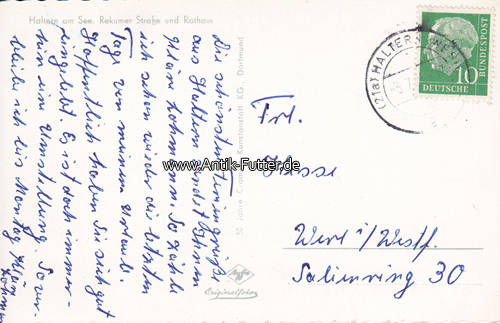 Haltern am See. Rekumer Straße und Rathaus
Die schönsten Feriengrüße
aus Haltern sendet Ihnen
Kläre Lohmann. So zähle
ich schon wieder die letzten
Tage von meinem Urlaub.
Hoffentlich haben Sie sich gut
eingelebt. Es ist doch immer-
hin eine Umstellung. So ver-
bleibe ich bis Montag
50 Jahre Kunstanstalt KG., Dortmund
Agfa
Originalfoto
www.Antik-Futter.de
(21a) HALTERN (WESTF)
10
DEUTSCHE
BUNDESPOST
Frl.
Werl i/Westf.
Salinenring 30